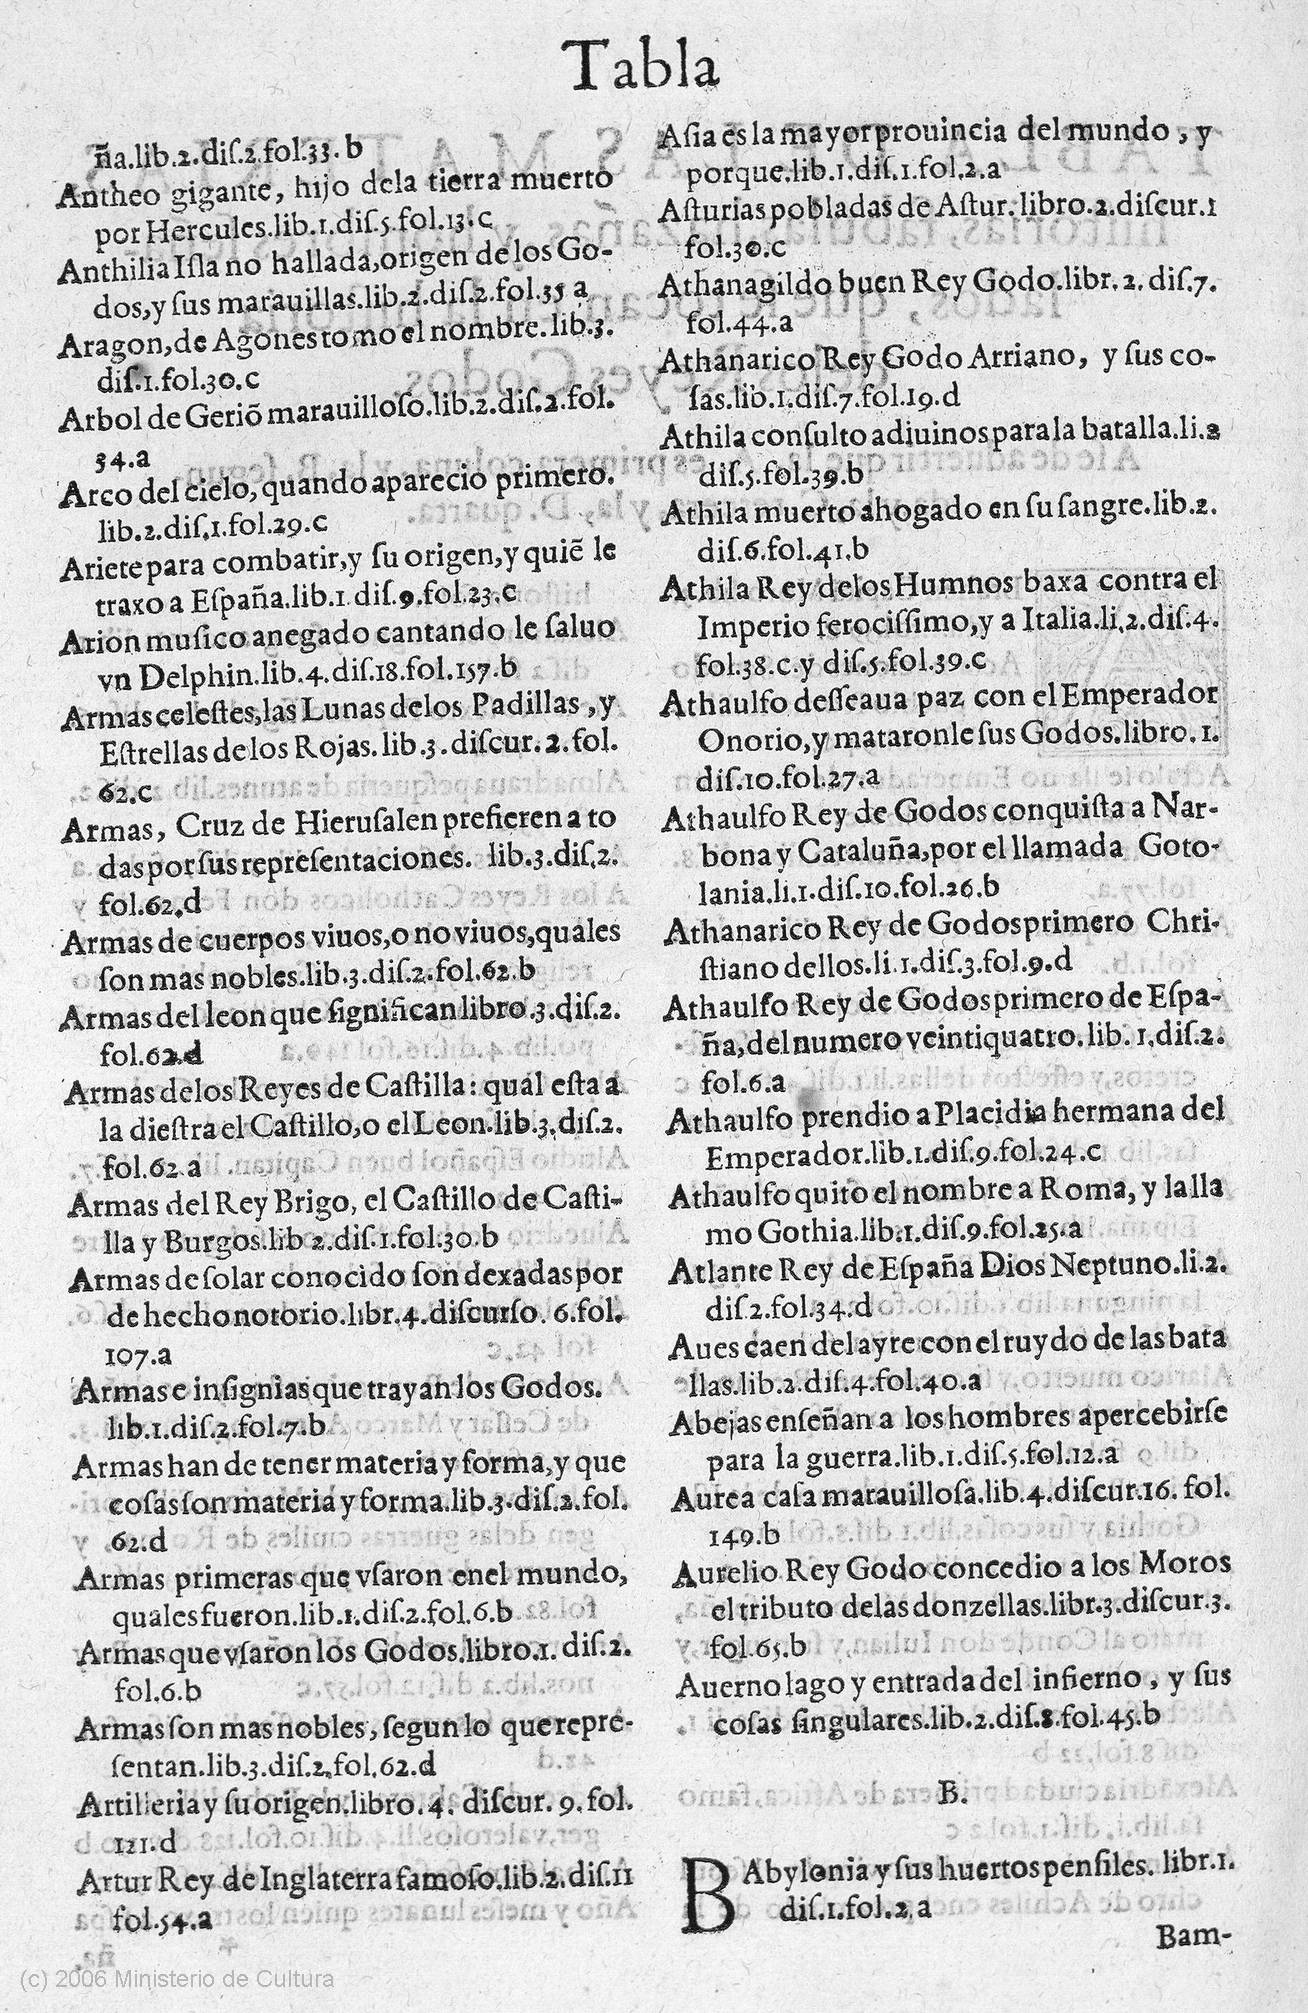 Tabla
ña.lib.2.diſ.2.fol.33.b
Antheo gigante, hijo dela tierra muerto
por Hercules.lib.1.diſ.5.fol.13.c
Anthilia Iſla no hallada,origen de los Go-
dos,y ſus marauillas.lib.2.diſ.2.fol.35 a
Aragon,de Agones tomo el nombre.lib.3.
diſ.1.fol.30.c
Arbol de Geriõ marauilloſo.lib.2.diſ.2.fol.
34.a
Arco del cielo, quando aparecio primero.
lib.2.diſ.1.fol.29.c
Ariete para combatir,y ſu origen,y quiẽ le
traxo a Eſpaña.lib.1.diſ.9.fol.23.c
Arion muſico anegado cantando le ſaluo
vn Delphin.lib.4.diſ.18.fol.157.b
Armas celeſtes,las Lunas delos Padillas ,y
Eſtrellas de los Rojas.lib.3.diſcur.2.fol.
62.c
Armas, Cruz de Hieruſalen prefieren a to
das por ſus repreſentaciones. lib.3.diſ.2.
fol.62.d
Armas de cuerpos viuos,o no viuos,quales
ſon mas nobles.lib.3.diſ.2.fol.62.b
Armas del leon que ſignifican libro.3.diſ.2.
fol.62.d
Armas delos Reyes de Caſtilla: qual eſta a
la dieſtra el Caſtillo,o el Leon.lib.3.diſ.2.
fol.62.a
Armas del Rey Brigo, el Caſtillo de Caſti-
lla y Burgos.lib 2.diſ.1.fol.30.b
Armas de ſolar conocido ſon dexadas por
de hecho notorio.libr.4.diſcurſo. 6.fol.
107.a
Armas e inſignias que trayan los Godos.
lib.1.diſ.2.fol.7.b
Armas han de tener materia y forma,y que
coſas ſon materia y forma.lib.3.diſ.2.fol.
62.d
Armas primeras que vſaron enel mundo,
quales fueron.lib.1.diſ.2.fol.6.b
Armas que vſaron los Godos.libro.1. diſ.2.
fol.6.b
Armas ſon mas nobles, ſegun lo que repre-
ſentan.lib.3.diſ.2.fol.62.d
Artilleria y ſu origen.libro.4. diſcur. 9.fol.
121.d
Artur Rey de Inglaterra famoſo.lib.2.diſ.11
fol.54.a
Aſia es la mayor prouincia del mundo , y
porque.lib.1.diſ.1.fol.2.a
Aſturias pobladas de Aſtur.libro.2.diſcur.1
fol.30.c
Athanagildo buen Rey Godo.libr.2. diſ.7.
fol.44.a
Athanarico Rey Godo Arriano, y ſus co-
ſas.lib.1.diſ.7.fol.19.d
Athila conſulto adiuinos para la batalla.li.2
diſ.5.fol.39.b
Athila muerto ahogado en ſu ſangre.lib.2.
diſ.6.fol.41.b
Athila Rey delos Humnos baxa contra el
Imperio ferociſſimo,y a Italia.li.2.diſ.4.
fol.38.c.y diſ.5.fol.39.c
Athaulfo deſſeaua paz con el Emperador
Onorio,y mataronle ſus Godos.libro.1.
diſ.10.fol.27.a
Athaulfo Rey de Godos conquiſta a Nar-
bona y Cataluña,por el llamada Goto-
lania.li.1.diſ.10.fol.26.b
Athanarico Rey de Godos primero Chri-
ſtiano dellos.li.1.diſ.3.fol.9.d
Athaulfo Rey de Godos primero de Eſpa-
ña,del numero veintiquatro.lib.1.diſ.2.
fol.6.a
Athaulfo prendio a Placidia hermana del
Emperador.lib.1.diſ.9.fol.24.c
Athaulfo quito el nombre a Roma, y la lla
mo Gothia.lib.1.diſ.9.fol.25.a
Atlante Rey de Eſpaña Dios Neptuno.li.2.
diſ.2.fol.34.d
Aues caen del ayre con el ruydo de las bata
llas.lib.2.diſ.4.fol.40.a
Abejas enſeñan a los hombres apercebirſe
para la guerra.lib.1.diſ.5.fol.12.a
Aurea caſa marauilloſa.lib.4.diſcur.16. fol.
149.b
Aurelio Rey Godo concedio a los Moros
el tributo delas donzellas.libr.3.diſcur.3.
fol.65.b
Auerno lago y entrada del infierno , y ſus
coſas ſingulares.lib.2.diſ.8.fol.45.b
B.
BAbylonia y ſus huertos penſiles. libr.1.
diſ.1.fol.2.a
Bam-
(c) 2006 Ministerio de Cultura